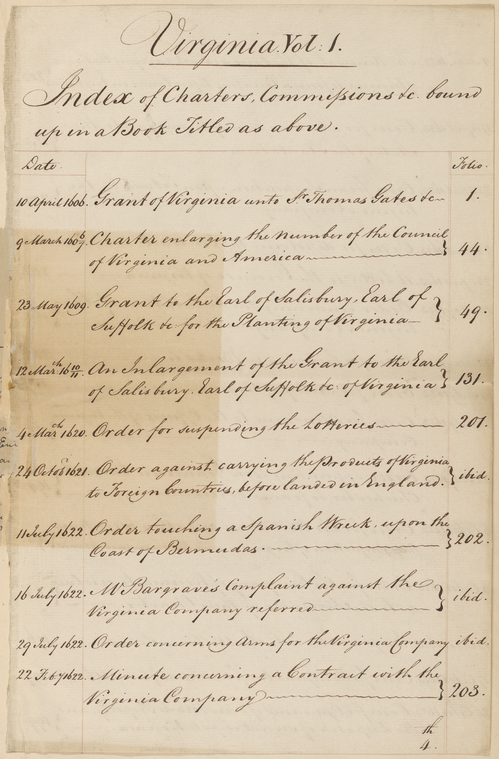 Virginia. Vol: 1.
Index of Charters, Commissions &c. bound
up in a Book Titled as above.
Date Folio.
10 April 1606. Grant of Virginia unto Sr. Thomas Gates &c 1.
9 March 1606/7. Charter enlarging the number of the Council
of Virginia and America } 44.
23 May 1609. Grant to the Earl of Salisbury, Earl of
Suffolk &c for the Planting of Virginia } 49.
12 Marth 16 10/11 An Inlargement of the Grant to the Earl
of Salisbury, Earl of Suffolk &c. of Virginia } 131.
4 Marth 1620. Order for suspending the Lotteries 201.
24 Octobr 1621. Order against carrying the Products of Virginia
to Foreign Countries, before landed in England. } ibid.
11 July 1622. Order touching a Spanish Wreck, upon the
Coast of Bermudas. } 202.
16 July 1622. Mr Bargrave's Complaint against the
Virginia Company referred } ibid.
29 July 1622. Order concerning Arms for the Virginia Company ibid.
22 Feby 1622. Minute concerning a Contract with the
Virginia Company } 203.
th
4.